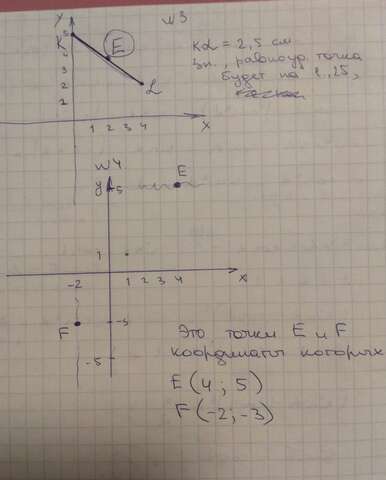 N3
y
5
K
4
3
2
1
E
L
1 2 3 4
x
KL = 2,5 см
Зн., равноуд. точка
будет на 1,25,
N4
y
5
E
1
-2
1 2 3 4
x
F
-5
-5
Это точки E и F
координаты которых
E (4 ; 5)
F (-2; -3)